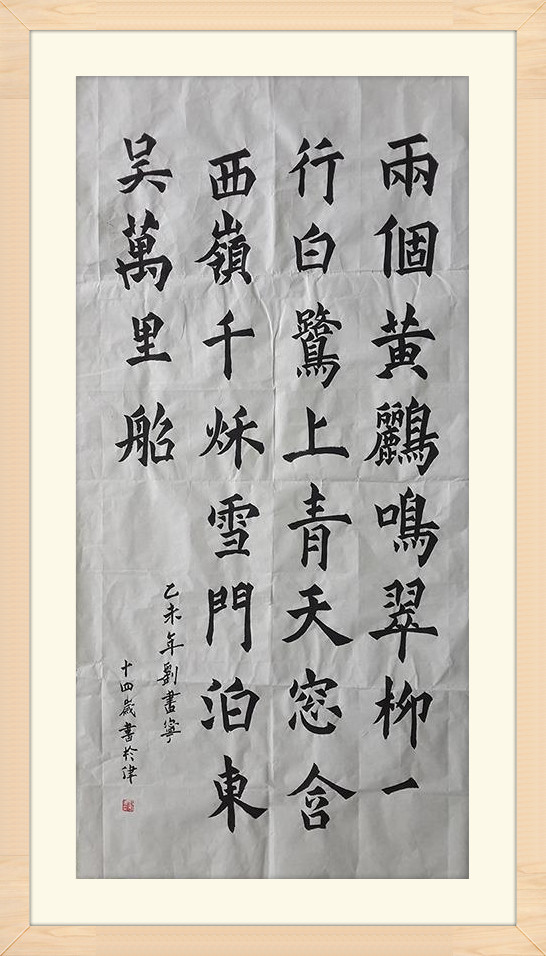 兩個黃鸝鳴翠柳一
行白鷺上青天窓含
西嶺千秌雪門泊東
吴萬里船
乙未年劉書寧
十四歲書於津